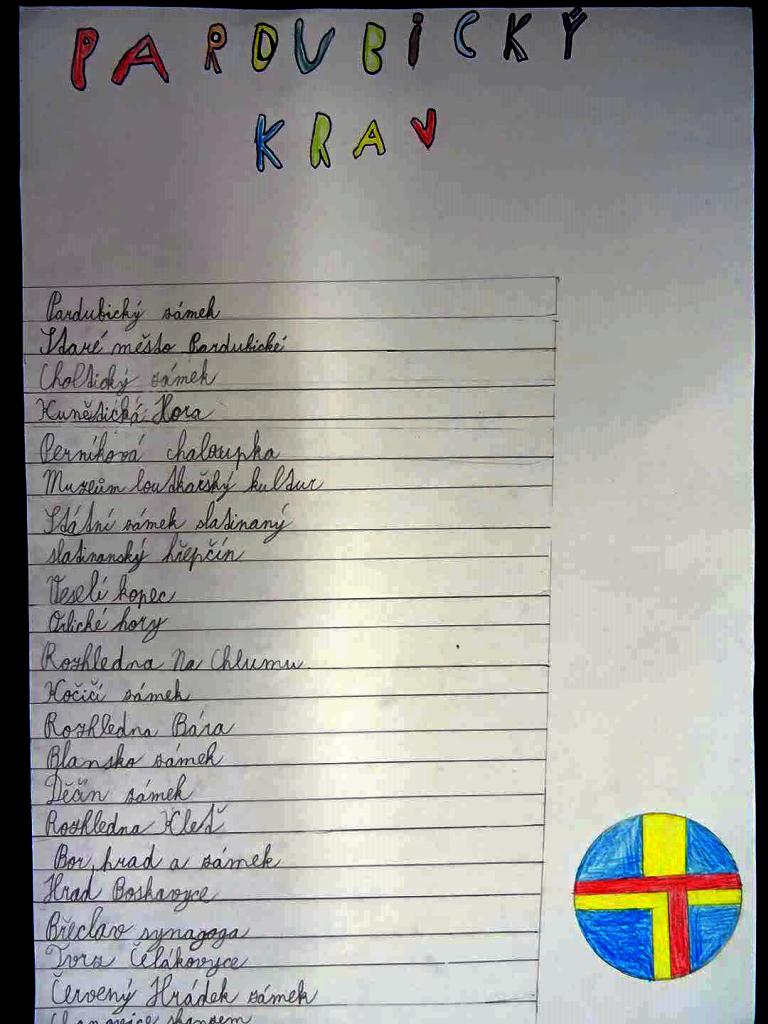 PARDUBICKÝ
KRAJ
Pardubický zámek
Staré město Pardubické
Choltický zámek
Kunětická Hora
Perníková chaloupka
Muzeům loutkařský kultur
Státní zámek slatinaný
slatinanský hřepčín
Veselí kopec
Orlické hory
Rozhledna Na Chlumu
Kočičí zámek
Rozhledna Bára
Blansko zámek
Děčín zámek
Rozhledna Kleť
Bor, hrad a zámek
Hrad Boskavyce
Břeclav synagoga
Tvrz Čelákovyce
Červený Hrádek zámek
Chanovice skanzem